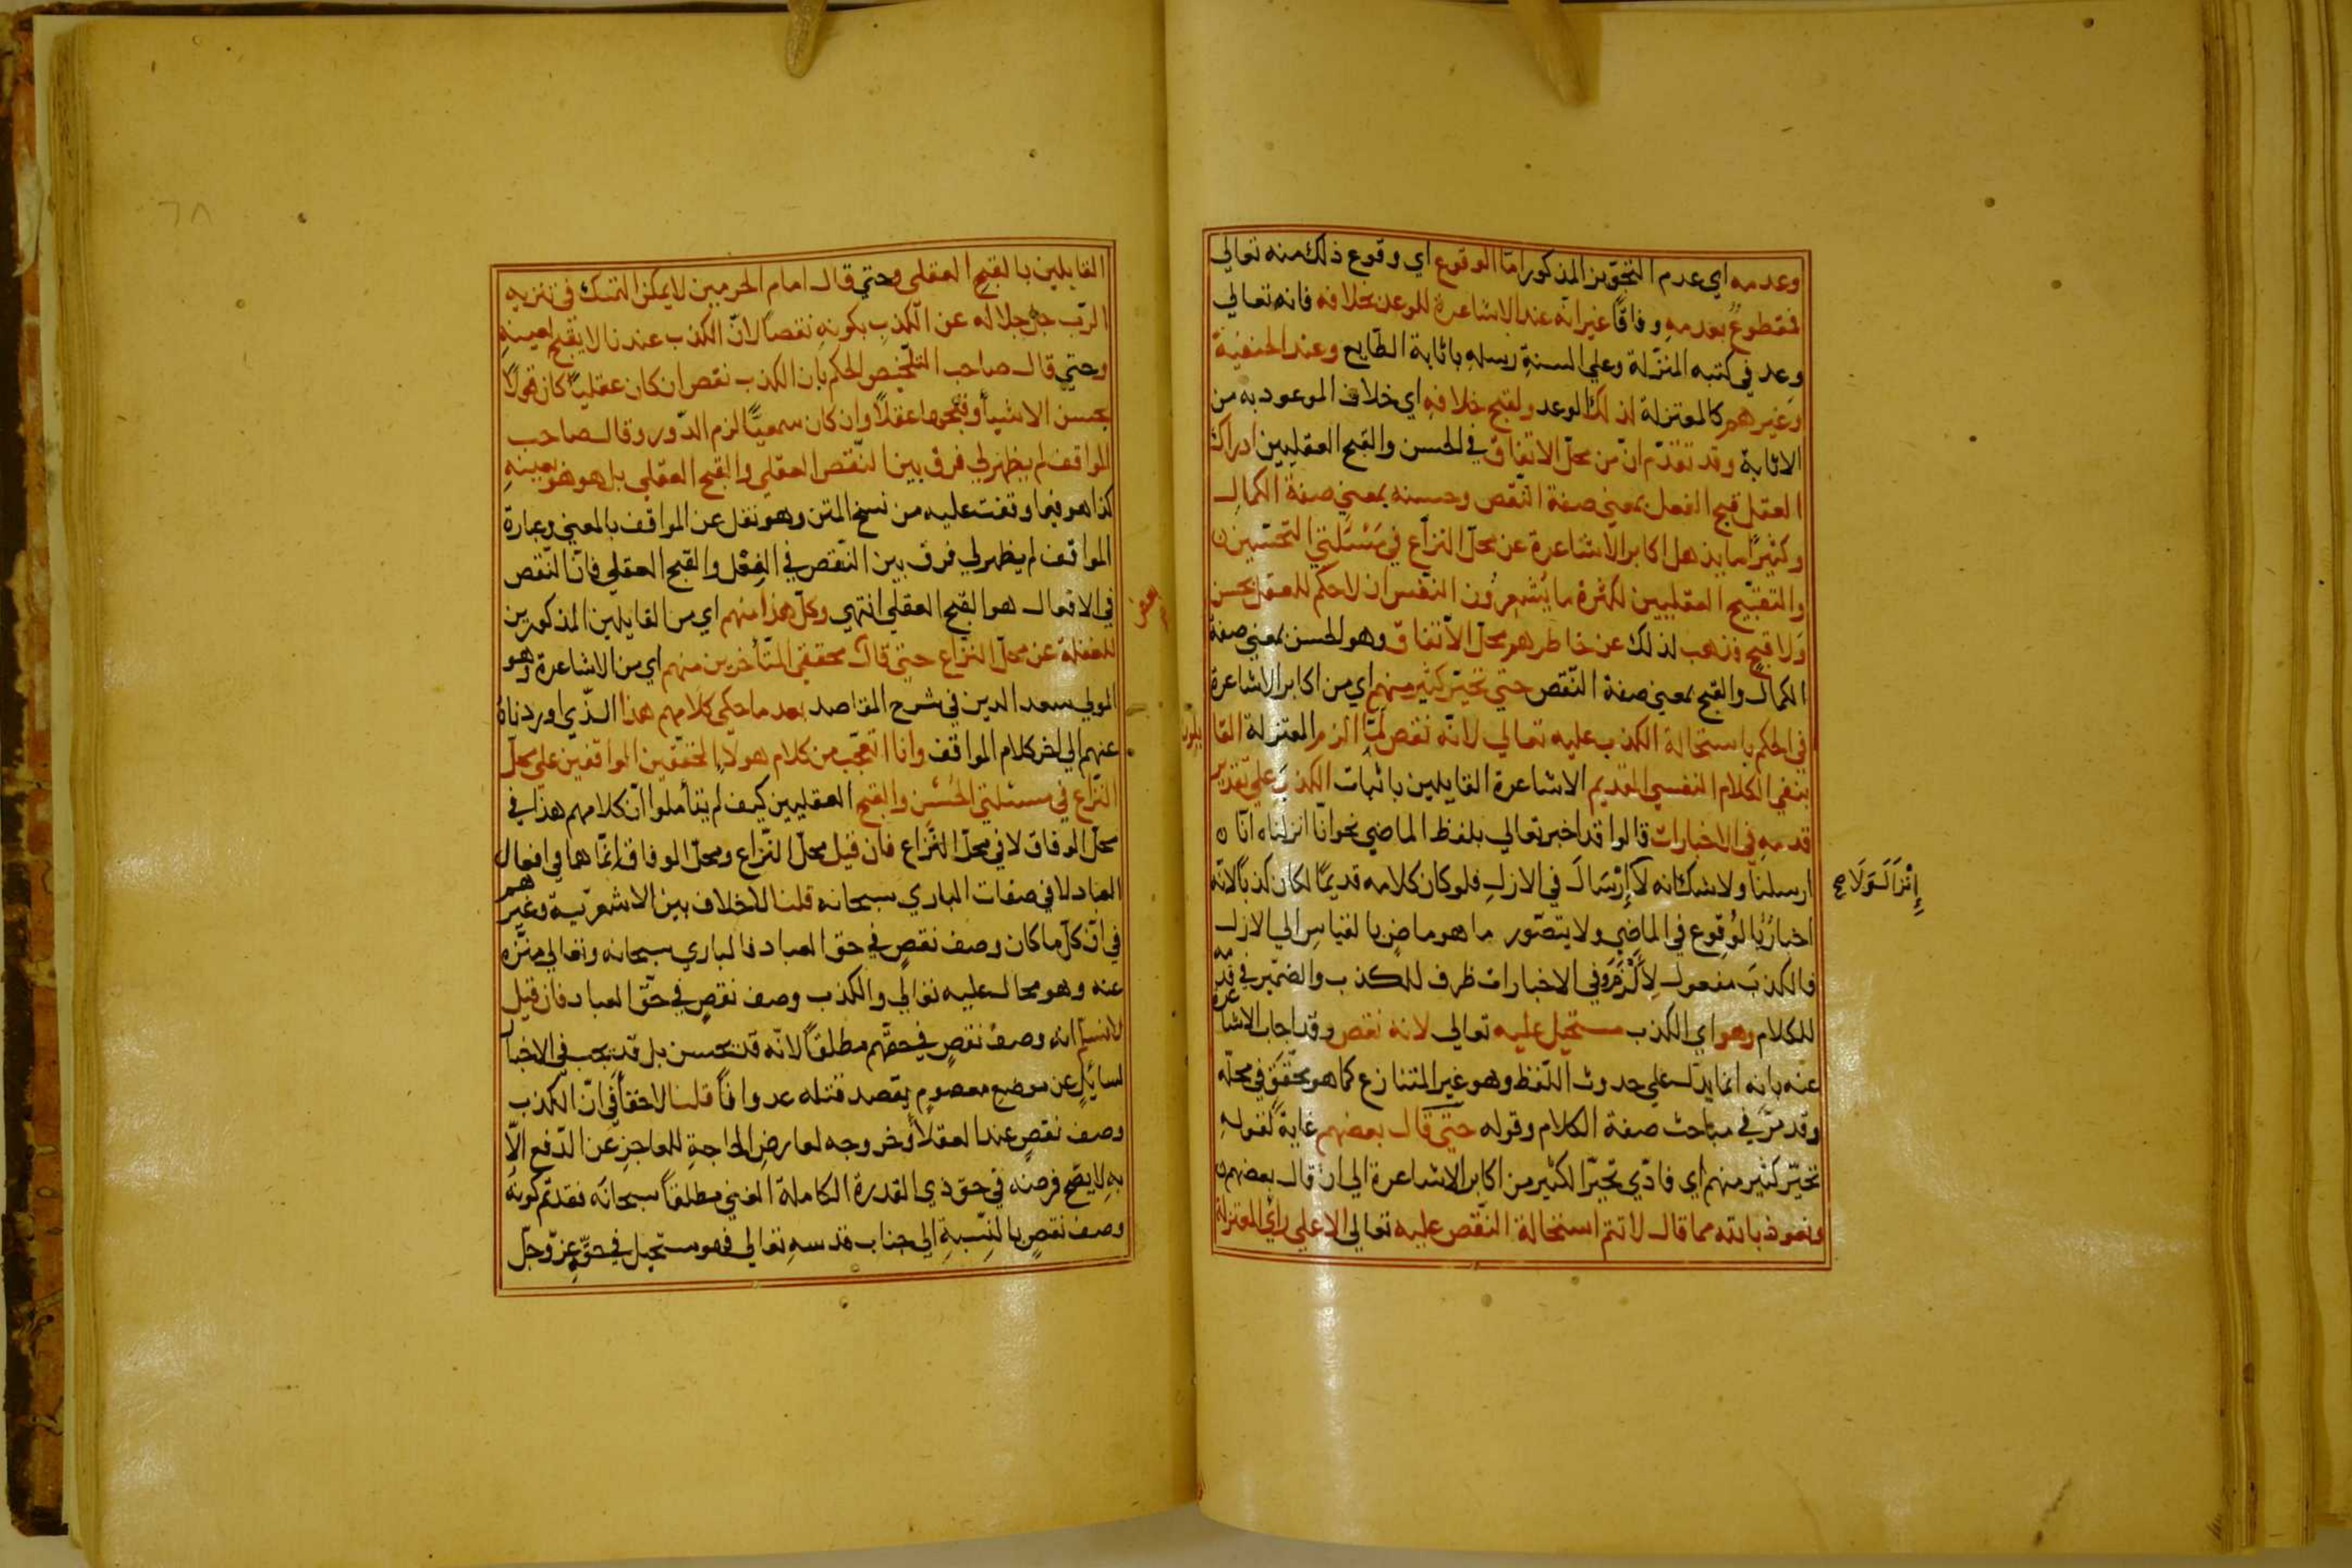 وعدمه اي عدم التجويز المذكور اما الوقوع اي وقوع ذلك منه تعالي
فمقطوع بعدمه وفاقا غير انه عند الاشاعرة للوعد بخلافه فانه تعالي
وعد في كتبه المنزلة وعلي السنة رسله باثابة الطايع وعند الحنفية
وغيرهم كالمعتزلة لذلك الوعد ولقبح خلافه اي خلاف الموعود به من
الاثابة وقد تقدم ان من محل الاتفاق في الحسن والقبح العقليين ادراك
العقل قبح الفعل بمعني صفة النقص وحسنه بمعني صفة الكمال
وكثيرا ما يذهل اكابر الاشاعرة عن محل النزاع في مسئلتي التحسين
والتقبيح العقليين لكثرة ما يشعرون النفس ان لا حكم للعقل بحسن
ولا قبح فذهب لذلك عن خاطرهم محل الاتفاق وهو الحسن بمعني صفة
الكمال والقبح بمعني صفة النقص حتي تحير كثير منهم اي من اكابر الاشاعرة
في الحكم باستحالة الكذب عليه تعالي لانه نقص لما الزم المعتزلة القا
يلون
بنفي الكلام النفسي القديم الاشاعرة القايلين باثبات الكذب علي تقدير
قدمه في الاخبارات قالوا قد اخبر تعالي بلفظ الماضي نحو انا انزلناه انا
ارسلنا ولا شك انه لا إرسال في الازل فلو كان كلامه قديما لكان كذبا لانه
إنزال ولا صح
اخبار بالوقوع في الماضي ولا يتصور ما هو ماض بالقياس الي الازل
فالكذب مفعول لألزم وفي الاخبارات ظرف للكذب والضمير في قدمه
للكلام وهو اي الكذب مستحيل عليه تعالي لانه نقص وقد اجاب الاشاعرة
عنه بانه انما يدل علي حدوث اللفظ وهو غير المتنازع كما هو محقق في محله
وقد مر في مباحث صفة الكلام وقوله حتي قال بعضهم غاية لقوله
تحير كثير منهم اي فادي تحير الكثير من اكابر الاشاعرة الي ان قال بعضهم
ونعوذ بالله مما قال لا تتم استحالة النقص عليه تعالي الا علي راي المعتزلة
٦٨
القايلين بالقبح العقلي وحتي قال امام الحرمين لا يمكن التمسك في تنزيه
الرب جل جلاله عن الكذب بكونه نقصا لان الكذب عندنا لا يقبح لعينه
وحتي قال صاحب التلخيص الحكم بان الكذب نقص ان كان عقليا كان قولا
بحسن الاشيا وقبحها عقلا وان كان سمعيا لزم الدور وقال صاحب
المواقف لم يظهر لي فرق بين النقص العقلي والقبح العقلي بل هو هو بعينه
كذا هو فيما وقفت عليه من نسخ المتن وهو نقل عن المواقف بالمعني وعبارة
المواقف لم يظهر لي فرق بين النقص في الفعل والقبح العقلي فان النقص
في الافعال هو القبح العقلي انتهي وكل هذا منهم اي من القايلين المذكورين
للغفلة عن محل النزاع حتي قال محققي المتأخرين منهم اي من الاشاعرة وهو
بعض
المولي سعد الدين في شرح المقاصد بعد ما حكي كلامهم هذا الذي اوردناه
عنهم الي اخر كلام المواقف وانا اتعجب من كلام هولاء المحققين الواقفين علي محل
النزاع في مسئلتي الحسن والقبح العقليين كيف لم يتأملوا ان كلامهم هذا في
محل الوفاق لا في محل النزاع فان قيل محل النزاع ومحل الوفاق انما هما في افعال
العباد لا في صفات الباري سبحانه قلنا لا خلاف بين الاشعرية وغيرهم
في ان كل ما كان وصف نقص في حق العباد فالباري سبحانه وتعالي منزه
عنه وهو محال عليه تعالي والكذب وصف نقص في حق العباد فان قيل
لا نسلم انه وصف نقص في حقهم مطلقا لانه قد يحسن بل قد يجب في الاخبار
لسايل عن موضع معصوم يقصد قتله عدوانا قلنا لا خفأ في ان الكذب
وصف نقص عند العقلاء وخروجه لعارض الحاجة للعاجز عن الدفع الا
به لا يصح فرضه في حق ذي القدرة الكاملة الغني مطلقا سبحانه فقد تم كونه
وصف نقص بالنسبة الي جناب قدسه تعالي فهو مستحيل في حقه عز وجل